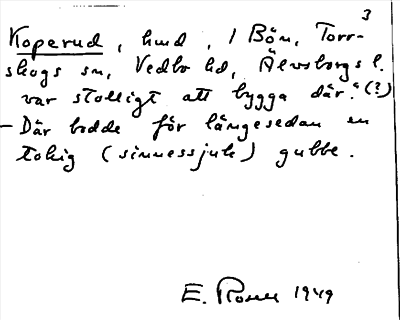 3
Koperud, hmd, i Bön, Torr-
skogs sn, Vedbo hd, Älvsborgs l.
var stolligt att bygga där." (?)
– Där bodde för längesedan en
tokig (sinnessjuk) gubbe.
E. Rosell 1949